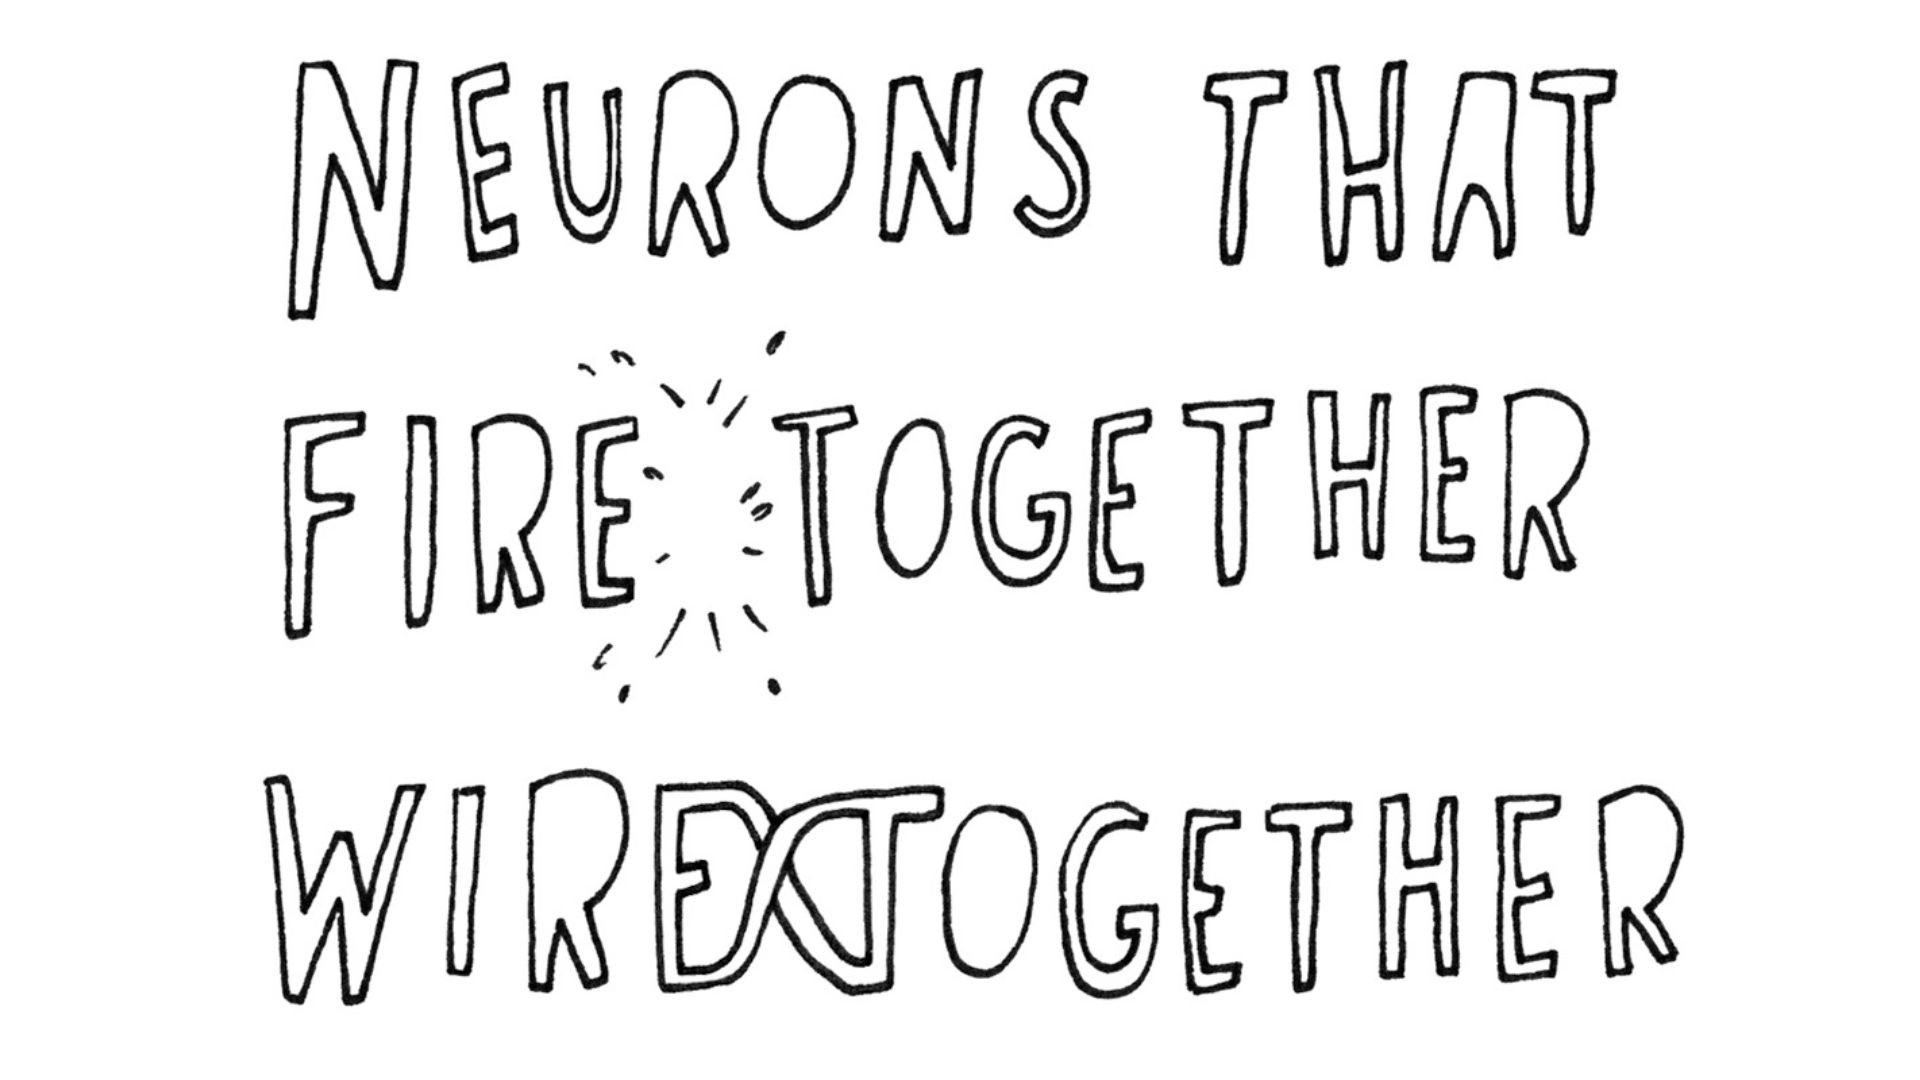 NEURONS THAT
FIRE TOGETHER
WIRE TOGETHER